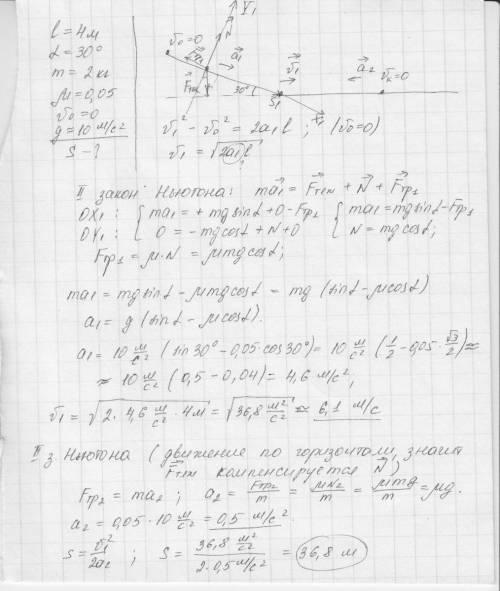 l = 4 м
α = 30°
m = 2 кг
μ = 0,05
v₀ = 0
g = 10 м/с²
S - ?
v₀ = 0
Y₁
N
Fтр₁
a₁
Fтяж
30°
S₁
v₁
X₁
a₂
v₂ = 0
v₁² - v₀² = 2a₁l ; (v₀=0)
v₁ = √2a₁l
II закон Ньютона: ma₁ = Fтяж + N + Fтр₁
OX₁ : { ma₁ = + mg sinα + 0 - Fтр₁ { ma₁ = mg sinα - Fтр₁
OY₁ : { 0 = - mg cosα + N + 0 { N = mg cosα;
Fтр₁ = μ·N = μmg cosα;
ma₁ = mg sinα - μmg cosα = mg (sinα - μcosα)
a₁ = g (sinα - μcosα).
a₁ = 10 м/с² (sin 30° - 0,05·cos 30°) = 10 м/с² (1/2 - 0,05·√3/2) ≈
≈ 10 м/с² (0,5 - 0,04) = 4,6 м/с²;
v₁ = √2·4,6 м/с²·4м = √36,8 м²/с² ≈ 6,1 м/с
II з. Ньютона (движение по горизонтали, значит
Fтяж компенсируется N)
Fтр₂ = ma₂ ; a₂ = Fтр₂/m = μN₂/m = μmg/m = μg.
a₂ = 0,05·10 м/с² = 0,5 м/с².
S = v₁²/2a₂ ; S = 36,8 м²/с² / 2·0,5 м/с² = 36,8 м